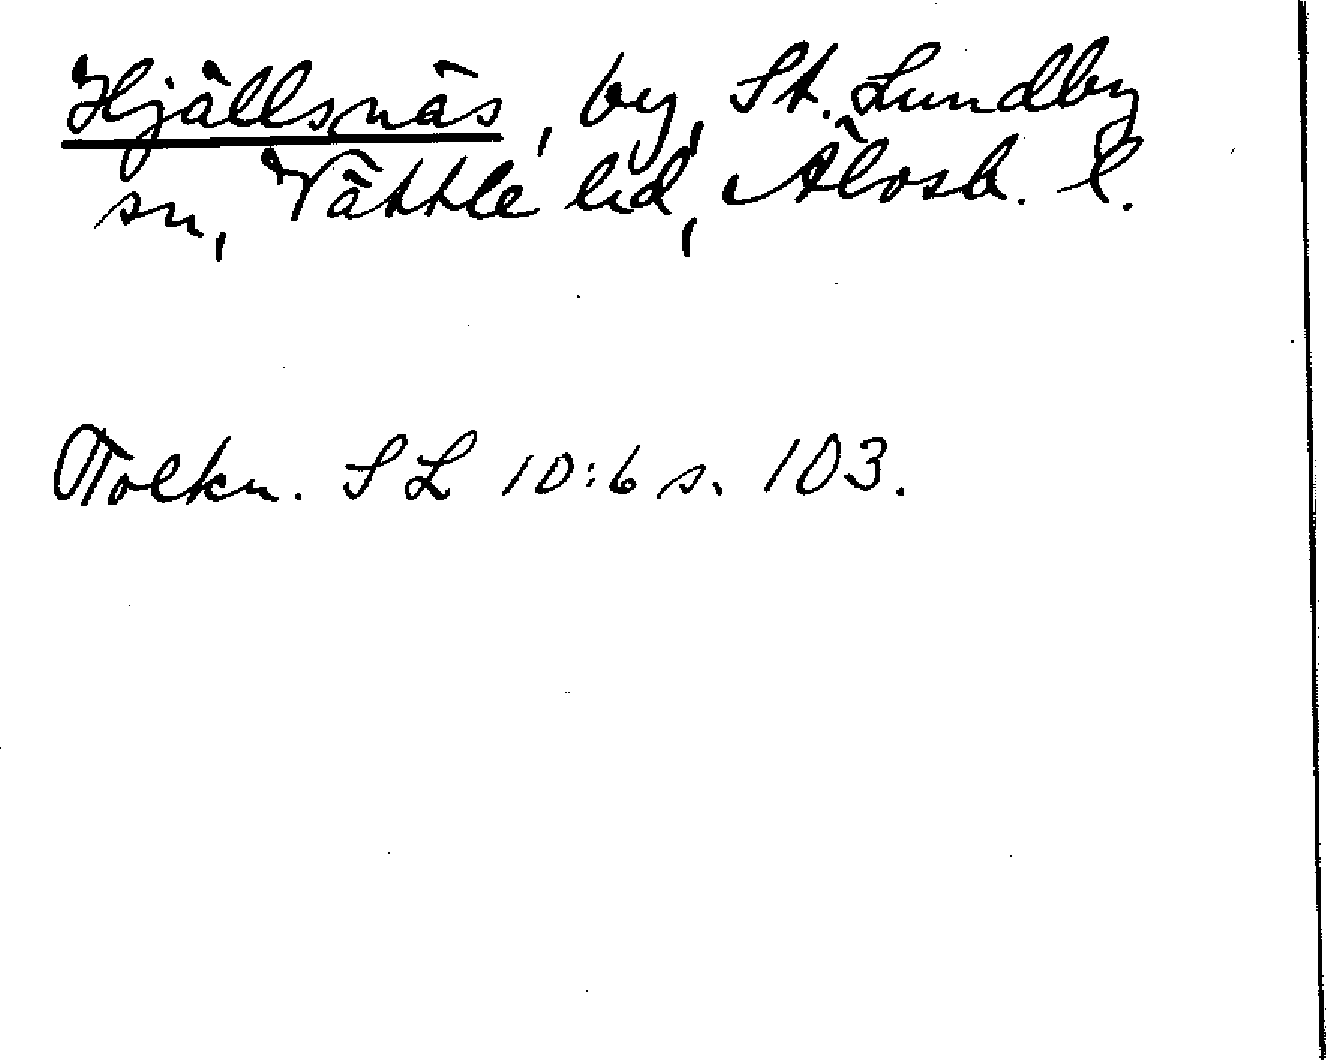 Hjällsnäs, by, St. Lundby
sn, Vättle hd, Älvsb. l.
Tolkn. SL 10:6 s. 103.